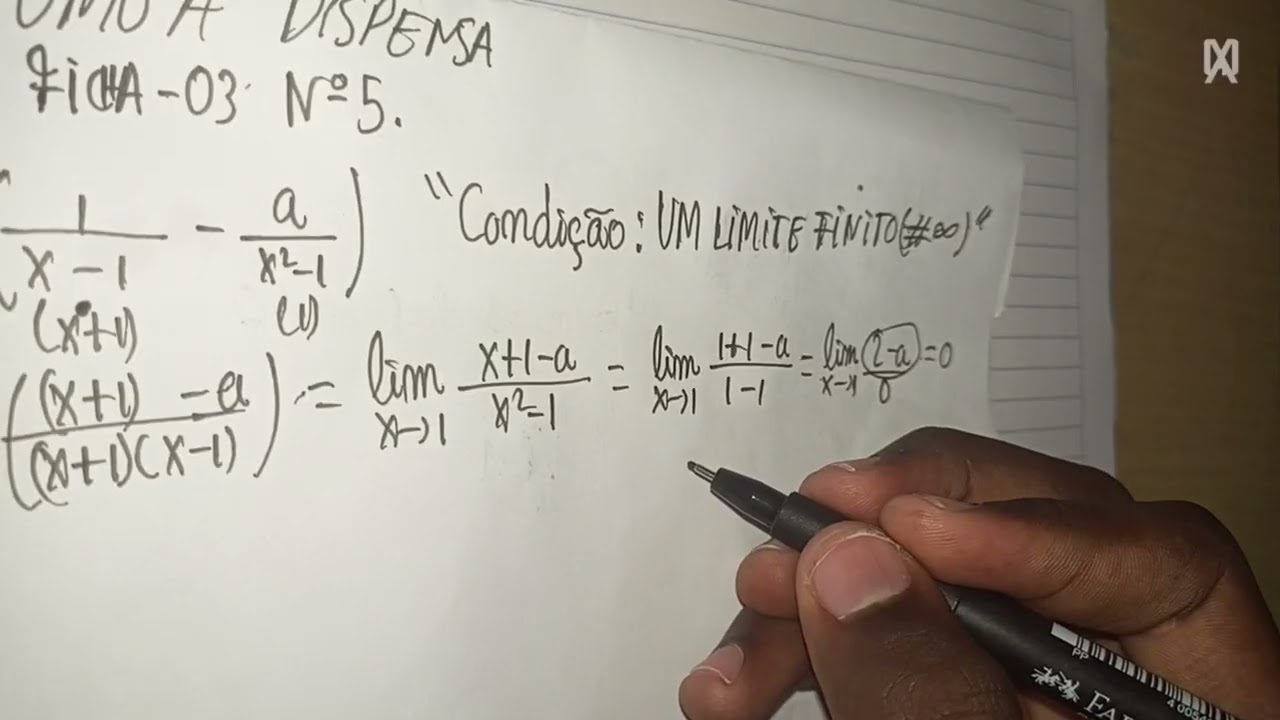 DISPENSA
FICHA-03 Nº 5.
1/(x-1) - a/(x²-1) ) "Condição: UM LIMITE FINITO(≠∞)"
(x+1) (1)
((x+1) - a)/((x+1)(x-1)) ) = lim x→1 (x+1-a)/(x²-1) = lim x→1 (1+1-a)/(1-1) = lim x→1 (2-a)/0 = 0
PP